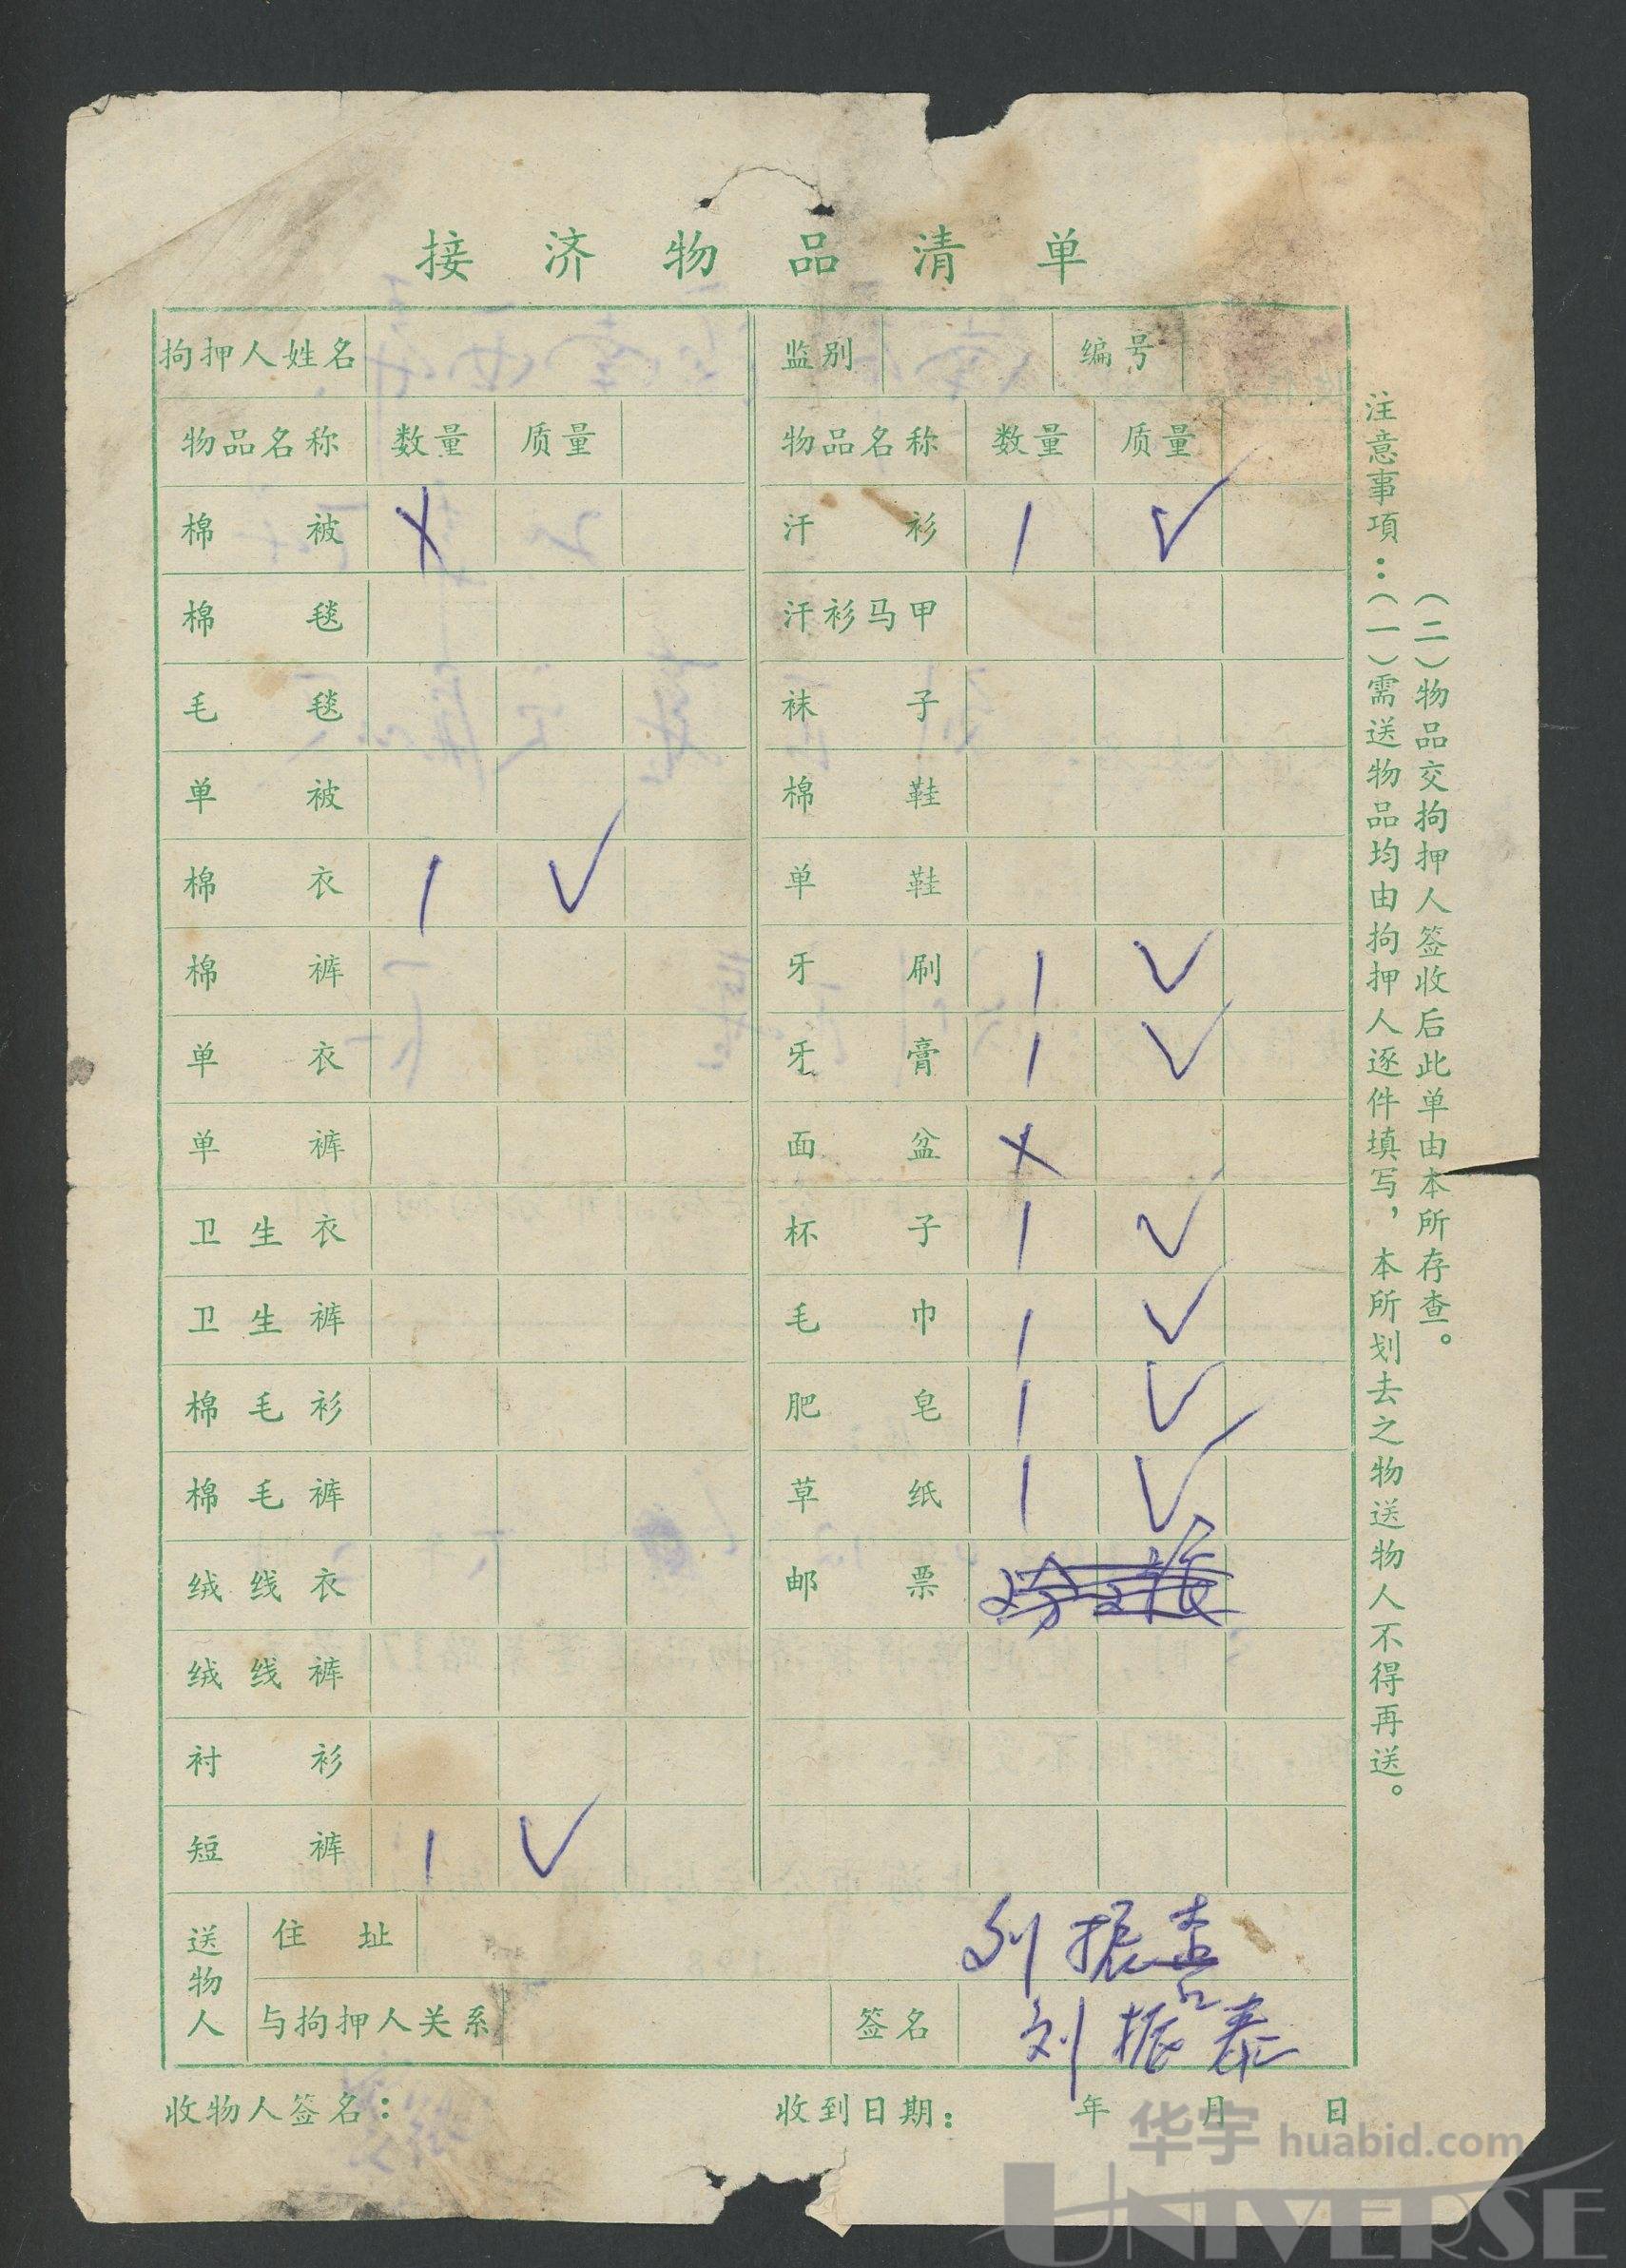 接济物品清单
拘押人姓名 监别 编号
物品名称 数量 质量 物品名称 数量 质量
棉被 X 汗衫 1 √
棉毯 汗衫马甲
毛毯 袜子
单被 棉鞋
棉衣 1 √ 单鞋
棉裤 牙刷 1 √
单衣 牙膏 1 √
单裤 面盆 X
卫生衣 杯子 1 √
卫生裤 毛巾 1 √
棉毛衫 肥皂 1 √
棉毛裤 草纸 1 √
绒线衣 邮票
绒线裤
衬衫
短裤 1 √
送物人 住址 刘振
与拘押人关系 签名 刘振泰
收物人签名： 收到日期： 年 月 日
注意事项：（一）需送物品均由拘押人逐件填写，本所划去之物送物人不得再送。
（二）物品交拘押人签收后此单由本所存查。
华宇 huabid.com
UNIVERSE